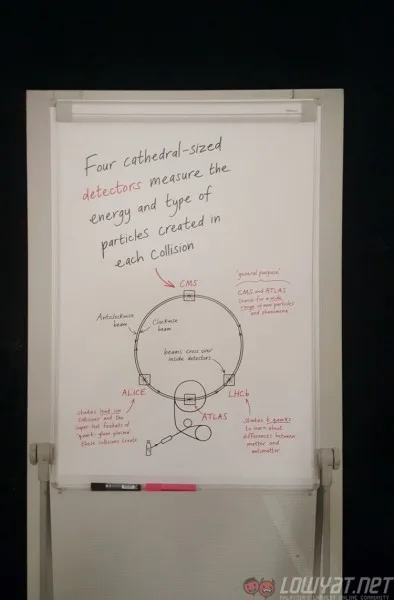 Four cathedral-sized
detectors measure the
energy and type of
particles created in
each collision
CMS
"general purpose"
CMS and ATLAS
search for a wide
range of new particles
and phenomena
Anticlockwise
beam
Clockwise
beam
beams cross over
inside detectors
ALICE
LHCb
ATLAS
studies lead ion
collisions and the
super-hot fireballs of
'quark-gluon plasma'
these collisions create
studies b quarks
to learn about
differences between
matter and
antimatter
LOWYAT.NET
MALAYSIA'S LARGEST ONLINE COMMUNITY